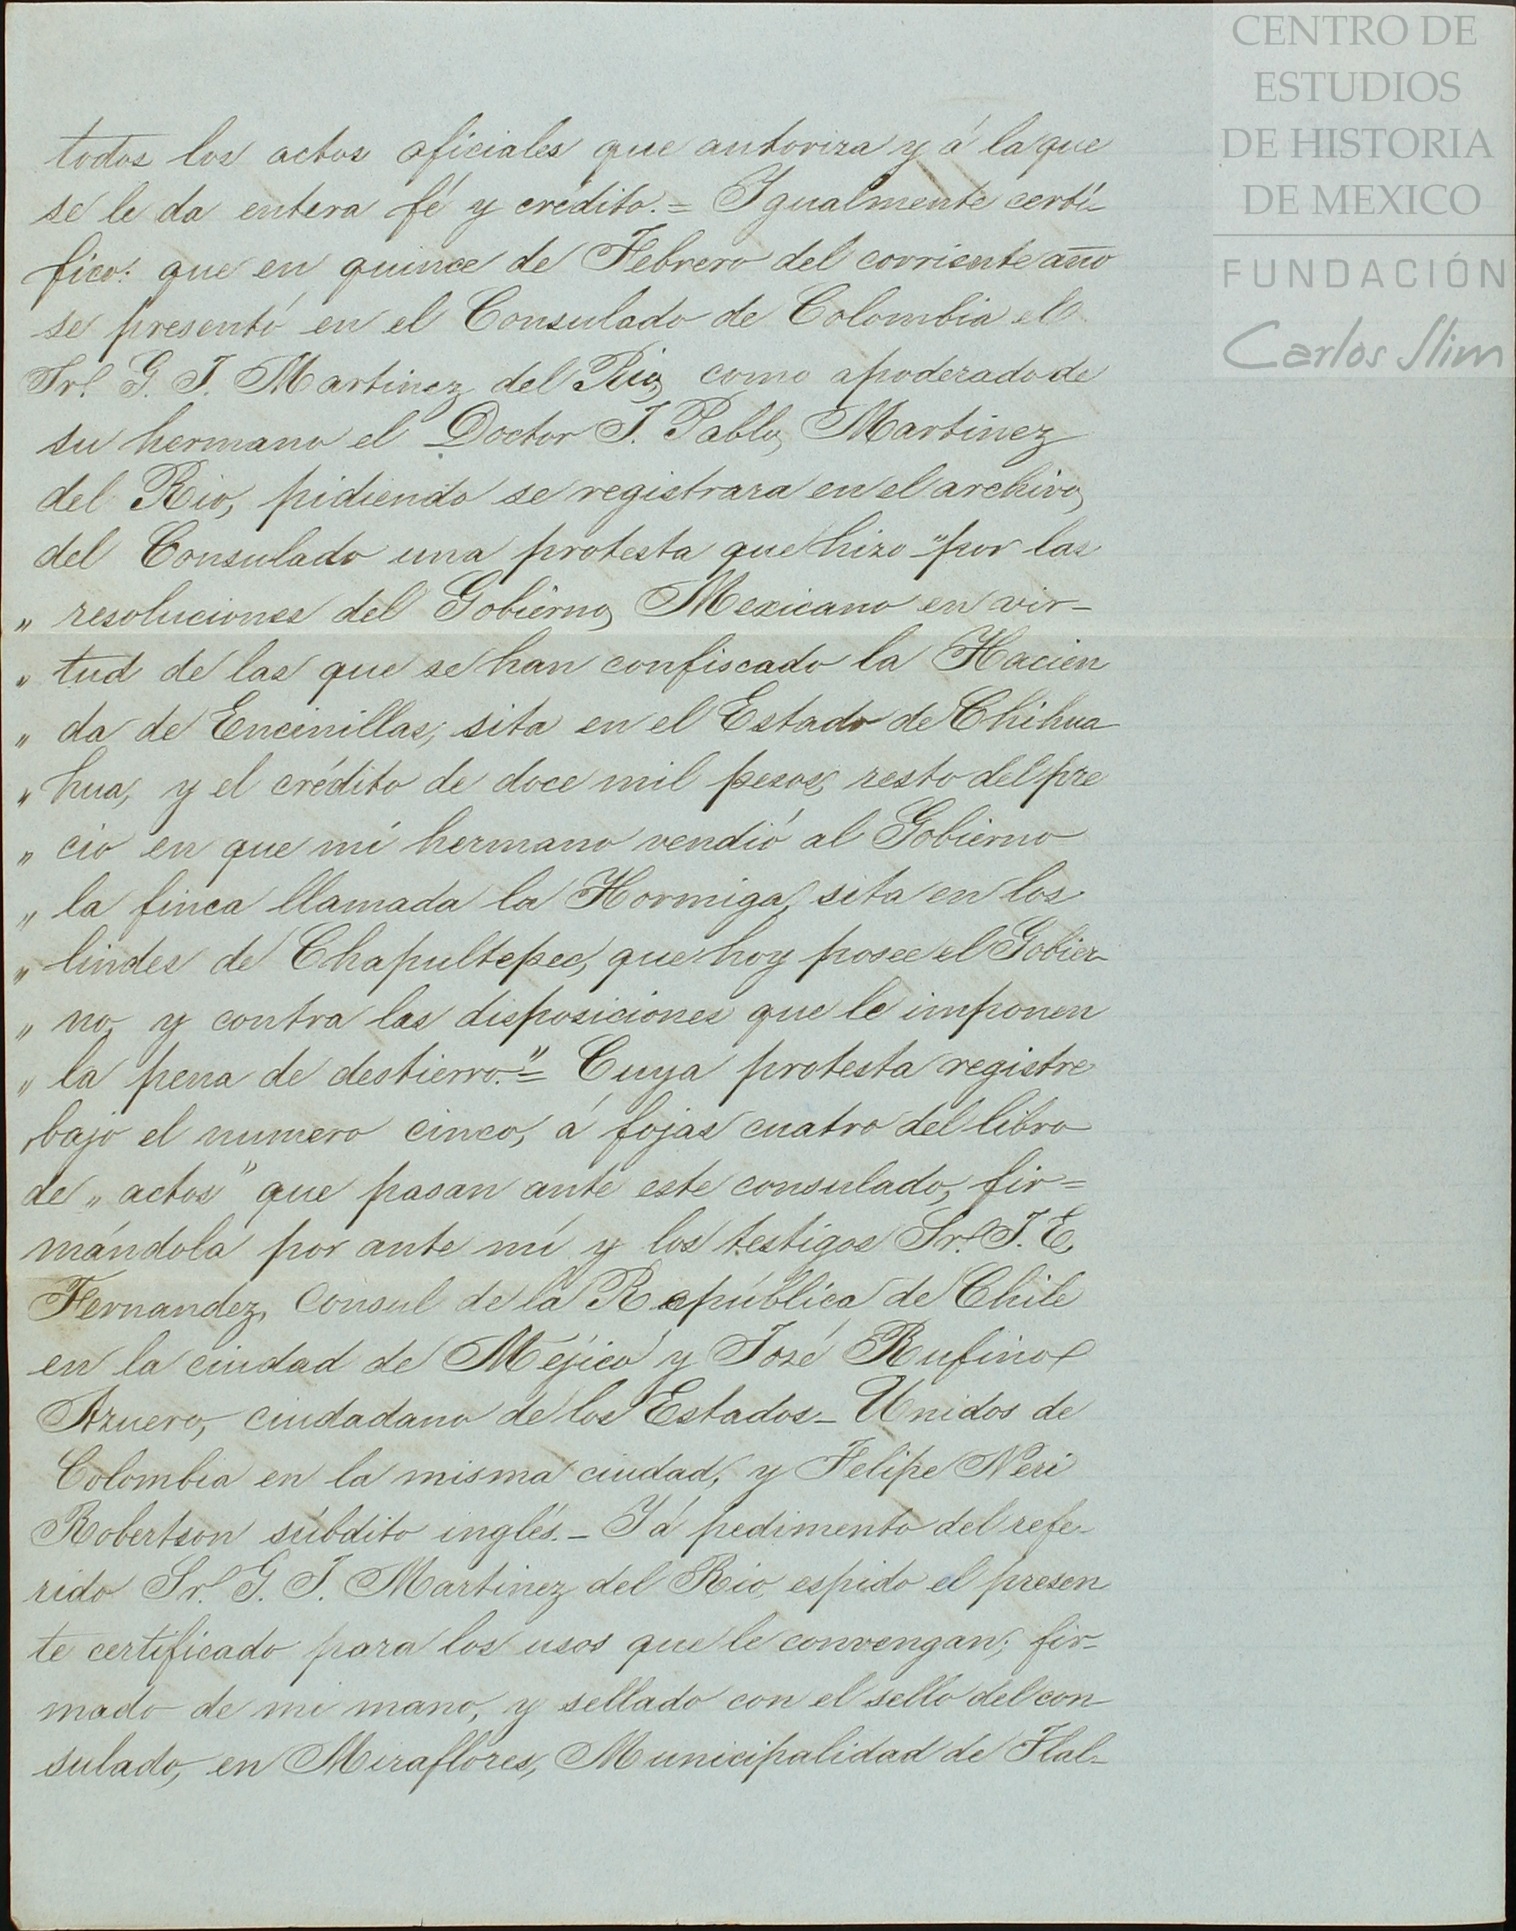 todos los actos oficiales que autoriza y á la que
se le da entera fé y crédito. = Igualmente certi-
fico: que en quince de Febrero del corriente año
se presentó en el Consulado de Colombia el
Sr. G. J. Martinez del Rio, como apoderado de
su hermano el Doctor J. Pablo, Martinez
del Rio, pidiendo se registrara en el archivo,
del Consulado una protesta que hizo "por las
" resoluciones del Gobierno, Mexicano en vir-
" tud de las que se han confiscado la Hacien
" da de Encinillas, sita en el Estado de Chihua
" hua, y el crédito de doce mil pesos, resto del pre
" cio en que mi hermano vendió al Gobierno
" la finca llamada la Hormiga, sita en los
" lindes de Chapultepec, que hoy posee el Gobier-
" no, y contra las disposiciones que le imponen
" la pena de destierro." = Cuya protesta registre
bajo el numero cinco, á fojas cuatro del libro
de "actos" que pasan ante este consulado, fir=
mándola por ante mí y los testigos Sr. J. E.
Fernandez, Consul de la República de Chile
en la ciudad de Méjico y José Rufino
Azuero, ciudadano de los Estados-Unidos de
Colombia en la misma ciudad, y Felipe Neri
Robertson súbdito inglés. - Y á pedimento del refe-
rido Sr. G. J. Martinez del Rio, espido el presen
te certificado para los usos que le convengan; fir-
mado de mi mano, y sellado con el sello del con-
sulado, en Miraflores, Municipalidad de Tlal-
CENTRO DE
ESTUDIOS
DE HISTORIA
DE MEXICO
FUNDACIÓN
Carlos Slim